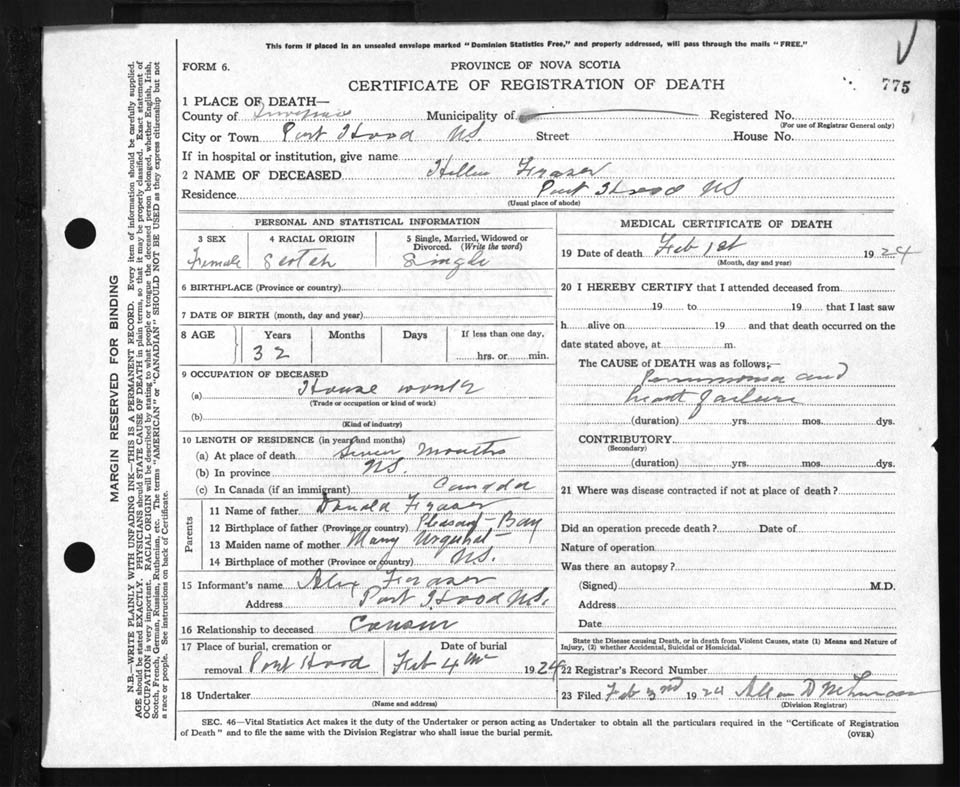 This form if placed in an unsealed envelope marked "Dominion Statistics Free," and properly addressed, will pass through the mails "FREE."
FORM 6.
PROVINCE OF NOVA SCOTIA
CERTIFICATE OF REGISTRATION OF DEATH
775
1 PLACE OF DEATH—
County of Inverness Municipality of Registered No.
(For use of Registrar General only)
City or Town Port Hood NS. Street House No.
If in hospital or institution, give name
2 NAME OF DECEASED Fraser
Residence Port Hood NS
(Usual place of abode)
PERSONAL AND STATISTICAL INFORMATION
3 SEX 4 RACIAL ORIGIN 5 Single, Married, Widowed or Divorced. (Write the word)
Female Scotch Single
6 BIRTHPLACE (Province or country)
7 DATE OF BIRTH (month, day and year)
8 AGE Years Months Days If less than one day,
32 hrs. or min.
9 OCCUPATION OF DECEASED
(a) House
(Trade or occupation or kind of work)
(b)
(Kind of industry)
10 LENGTH OF RESIDENCE (in years and months)
(a) At place of death Seven Months
(b) In province NS.
(c) In Canada (if an immigrant) Canada
Parents
11 Name of father Donald Fraser
12 Birthplace of father (Province or country) Pleasant Bay
13 Maiden name of mother Mary Urquhart
14 Birthplace of mother (Province or country) NS.
15 Informant's name Alex Fraser
Address Port Hood NS.
16 Relationship to deceased Cousin
17 Place of burial, cremation or removal Port Hood Date of burial Feb 4th 1924
18 Undertaker
(Name and address)
MEDICAL CERTIFICATE OF DEATH
19 Date of death Feb 1st 1924
(Month, day and year)
20 I HEREBY CERTIFY that I attended deceased from
19 to 19 that I last saw
h alive on 19 and that death occurred on the
date stated above, at m.
The CAUSE of DEATH was as follows:—
Pneumonia and
heart failure
(duration) yrs. mos. dys.
CONTRIBUTORY
(Secondary)
(duration) yrs. mos. dys.
21 Where was disease contracted if not at place of death?
Did an operation precede death? Date of
Nature of operation
Was there an autopsy?
(Signed) M.D.
Address
Date
State the Disease causing Death, or in death from Violent Causes, state (1) Means and Nature of
Injury, (2) whether Accidental, Suicidal or Homicidal.
22 Registrar's Record Number
23 Filed Feb 3rd 1924
(Division Registrar)
SEC. 46—Vital Statistics Act makes it the duty of the Undertaker or person acting as Undertaker to obtain all the particulars required in the "Certificate of Registration
of Death" and to file the same with the Division Registrar who shall issue the burial permit.
(OVER)
MARGIN RESERVED FOR BINDING
N.B.—WRITE PLAINLY WITH UNFADING INK—THIS IS A PERMANENT RECORD. Every item of information should be carefully supplied.
AGE should be stated EXACTLY. PHYSICIANS should STATE CAUSE OF DEATH in plain terms, so that it may be properly classified. Exact statement of
OCCUPATION is very important. RACIAL ORIGIN will be described by stating to what people or tongue the deceased person belonged, whether English, Irish,
Scotch, French, German, Russian, Ruthenian, etc. The terms "AMERICAN" or "CANADIAN" SHOULD NOT BE USED as they express citizenship but not
a race or people. See instructions on back of Certificate.